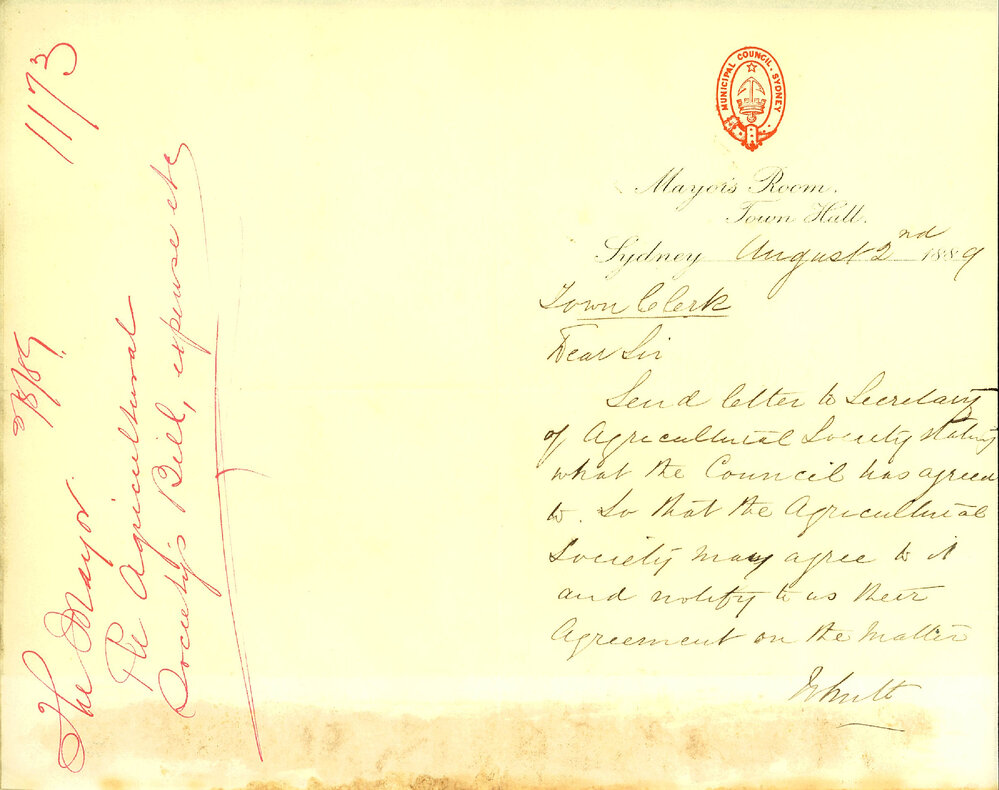 1173
2/8/89
The Mayor
Re Agricultural
Society's Bill, expense etc
MUNICIPAL COUNCIL. SYDNEY
Mayor's Room.
Town Hall.
Sydney August 2nd 1889
Town Clerk
Dear Sir
Send letter to Secretary
of Agricultural Society stating
what the Council has agreed
to. So that the Agricultural
Society may agree to it
and notify to us their
Agreement on the Matter